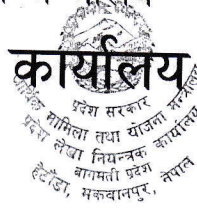 कार्यालय
प्रदेश सरकार
आर्थिक मामिला तथा योजना मन्त्रालय
प्रदेश लेखा नियन्त्रक कार्यालय
बागमती प्रदेश
हेटौंडा, मकवानपुर, नेपाल